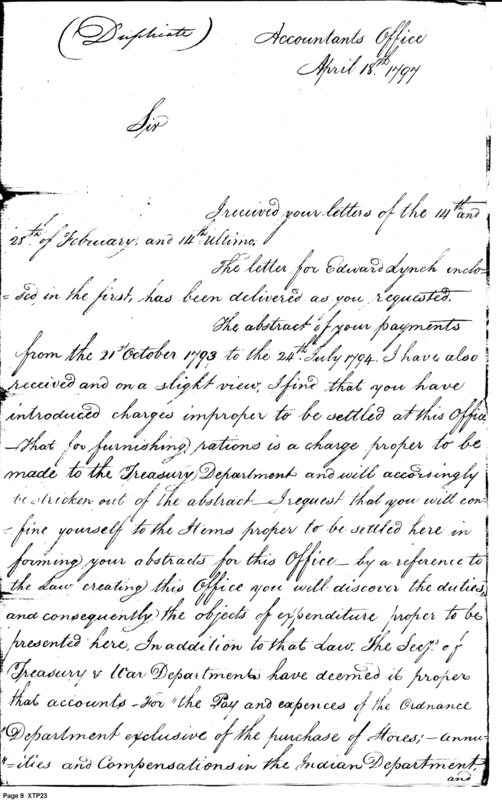 (Duplicate)
Accountants Office
April 18.th 1797
Sir
I received your letters of the 14th and
28th of February, and 14th Ultimo,
The letter for Edward Lynch inclo-
=sed in the first, has been delivered as you requested.
The abstract of your payments
from the 21st October 1793 to the 24th July 1794. I have also
received and on a slight view, I find that you have
introduced charges improper to be settled at this Office
- That for furnishing rations is a charge proper to be
made to the Treasury Department and will accordingly
be stricken out of the abstract - I request that you will con-
=fine yourself to the Items proper to be settled here in
forming your abstracts for this Office - by a reference to
the Law creating this Office you will discover the duties,
and consequently the objects of expenditure proper to be
presented here, In addition to that Law. The Secys. of
Treasury & War Departments have deemed it proper
that accounts - For "the Pay and expences of the Ordnance
"Department exclusive of the purchase of Stores; - annu-
"=ities and Compensations in the Indian Department;
and
Page 9 XTP23